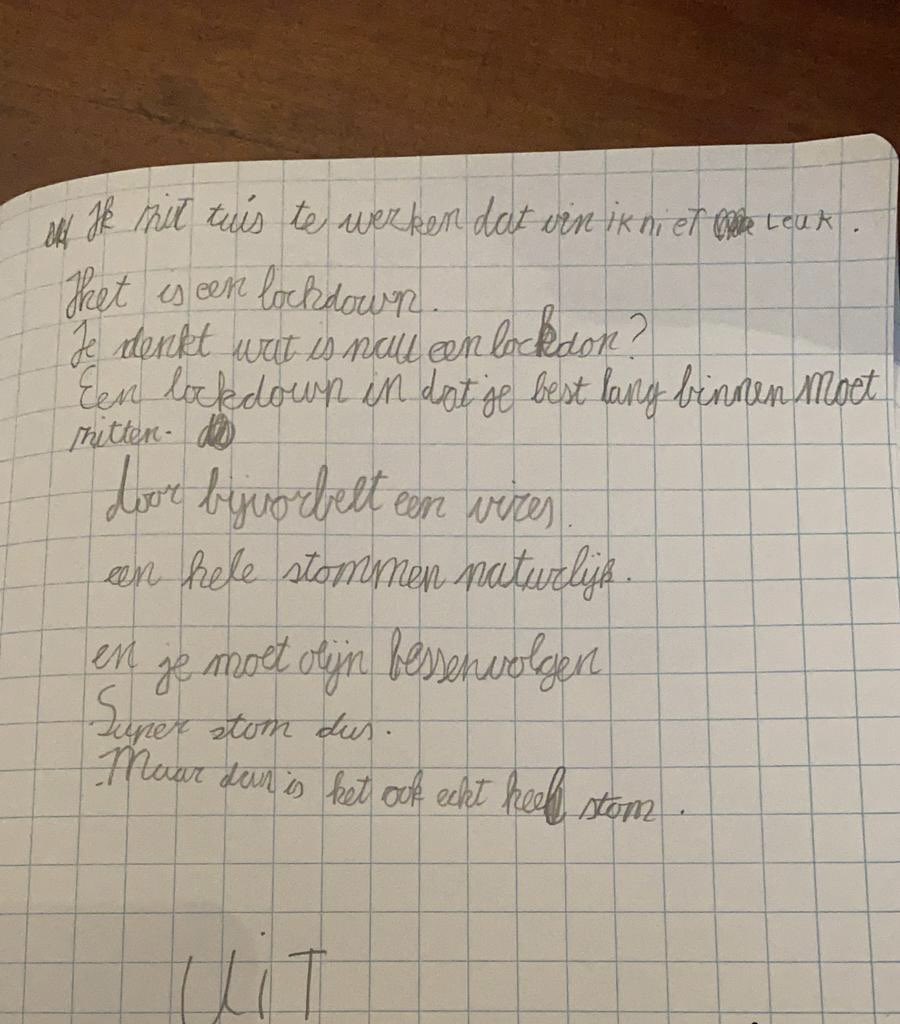 Ik zit tuis te werken dat vin ik niet Leuk.
Het is een lockdown.
Je denkt wat is nau een lockdon?
Een lockdown in dat je best lang binnen moet
zitten.
door bijvorbelt een vires.
een hele stommen naturlijk.
en je moet olijn lessen volgen
Super stom dus.
Maar dan is het ook echt heel stom.
UiT